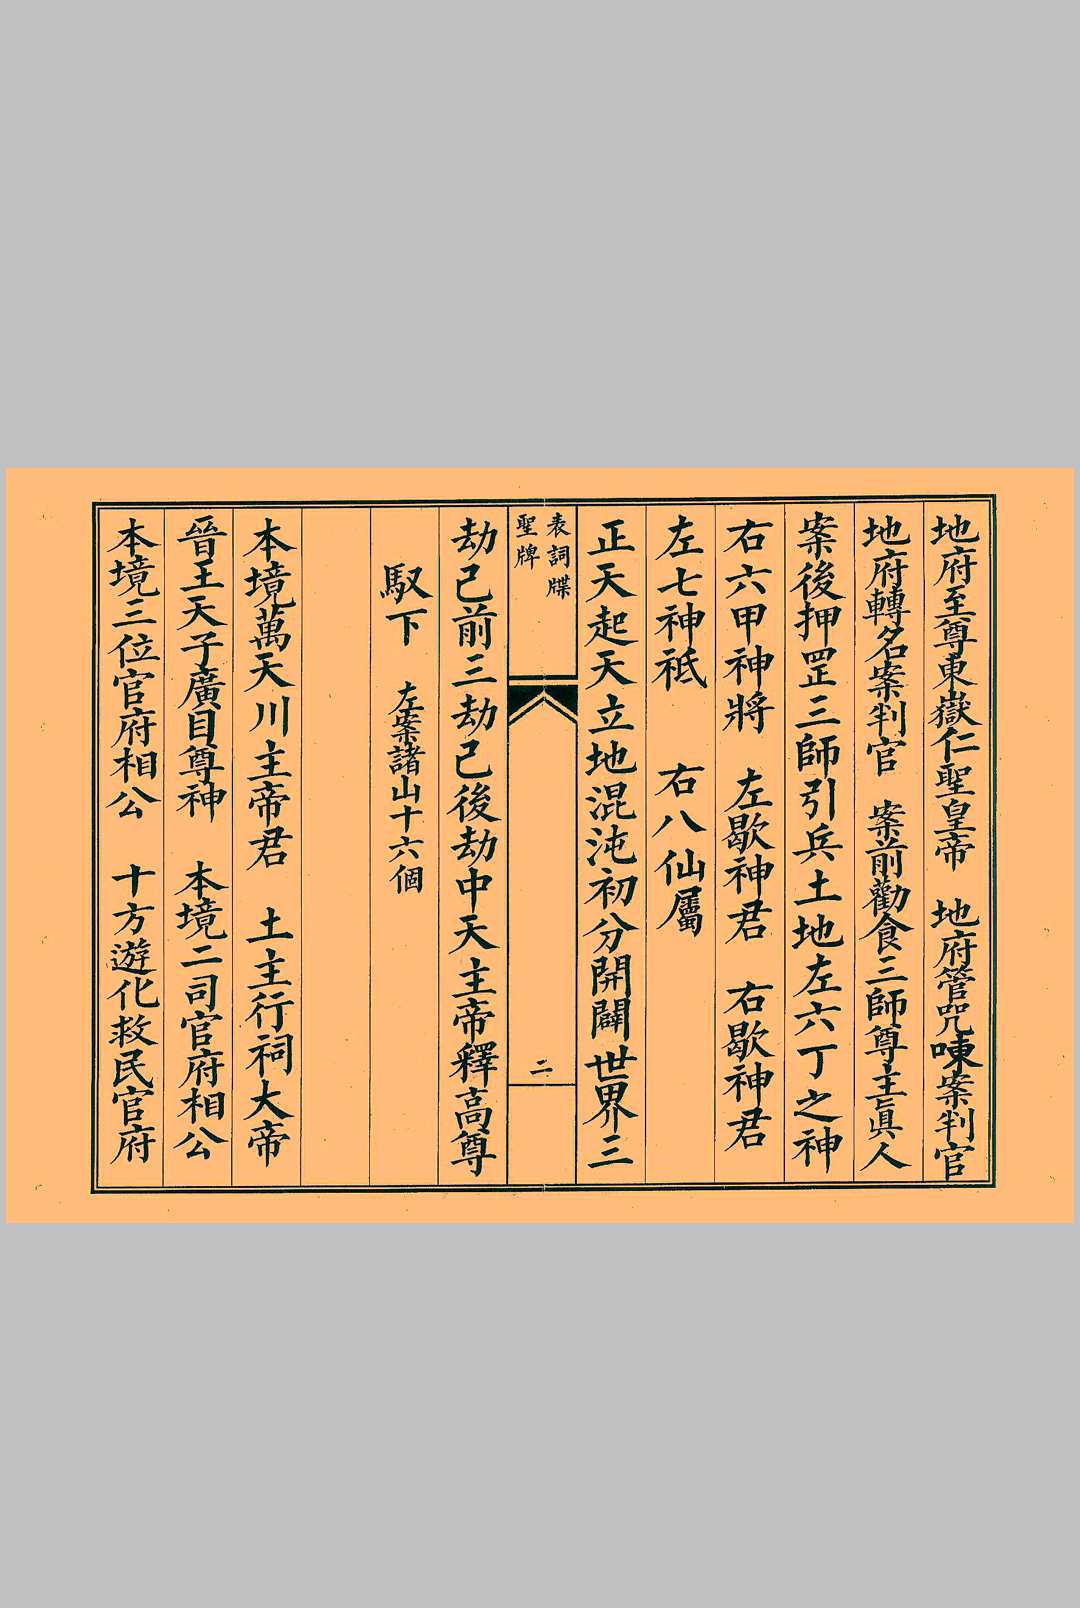 地府至尊東嶽仁聖皇帝　地府管咒㖦案判官
地府轉名案判官　案前勸食三師尊主眞人
案後押罡三師引兵土地左六丁之神
右六甲神將　左歇神君　右歇神君
左七神祇　右八仙屬
正天起天立地混沌初分開闢世界三
表詞牒
聖牌
二
劫己前三劫己後劫中天主帝釋高尊
馭下　左案諸山十六個
本境萬天川主帝君　土主行祠大帝
晉王天子廣目尊神　本境二司官府相公
本境三位官府相公　十方遊化救民官府